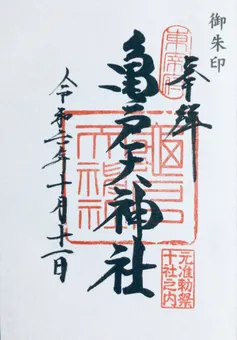 御朱印
奉拝
東宰府
亀戸天神社
亀戸天神社
元准勅祭
十社之内
令和三年十一月十一日